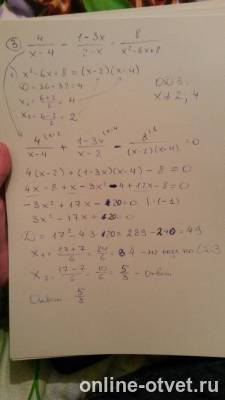 ③ 4/(x-4) - (1-3x)/(2-x) = 8/(x²-6x+8)
1) x²-6x+8 = (x-2)(x-4)
D = 36-32 = 4
x₁ = (6+2)/2 = 4
x₂ = (6-2)/2 = 2
ОДЗ:
x ≠ 2, 4
4/(x-4) + (1-3x)/(x-2) - 8/((x-2)(x-4)) = 0
4(x-2) + (1-3x)(x-4) - 8 = 0
4x-8+x-3x²-4+12x-8 = 0
-3x²+17x-20=0 (·(-1)
3x²-17x+20=0
D = 17²-4·3·20 = 289-240=49
x₁ = (17+7)/6 = 24/6 = 4 - не подх по ОДЗ
x₂ = (17-7)/6 = 10/6 = 5/3 - ответ
Ответ 5/3
online-otvet.ru